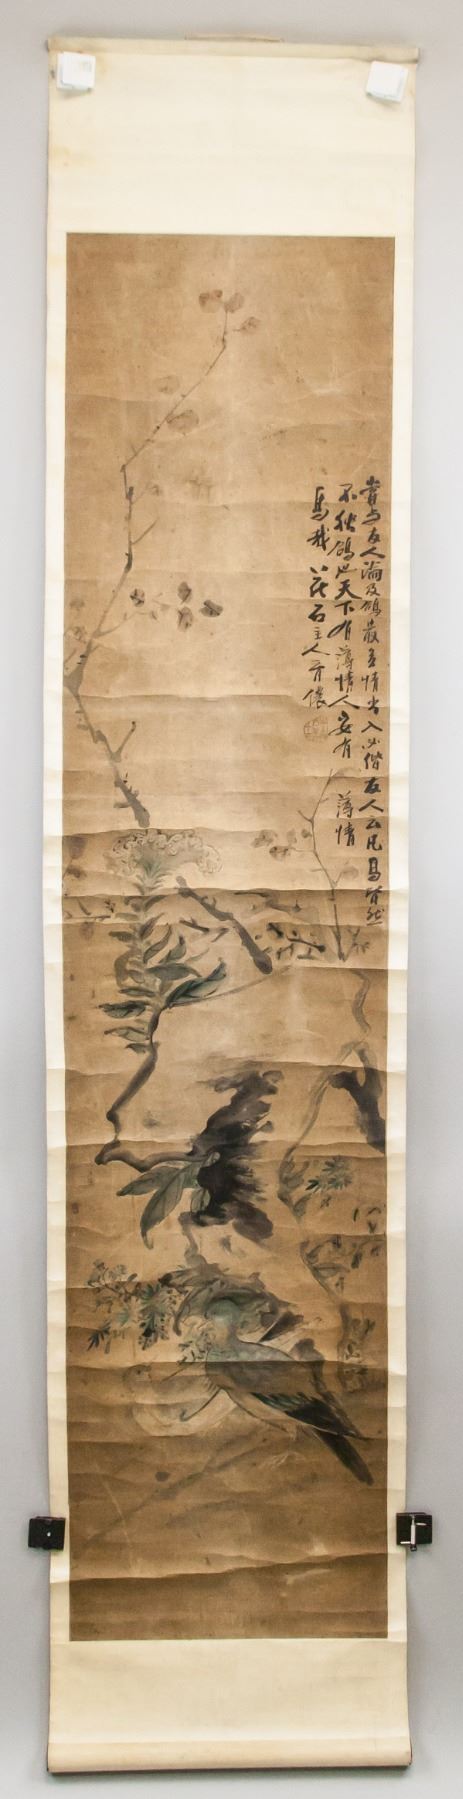 嘗與友人論及鴿最多情出入必偕友人云凡鳥皆然
不獨鴿也天下有薄情人安有薄情
鳥哉 花石主人